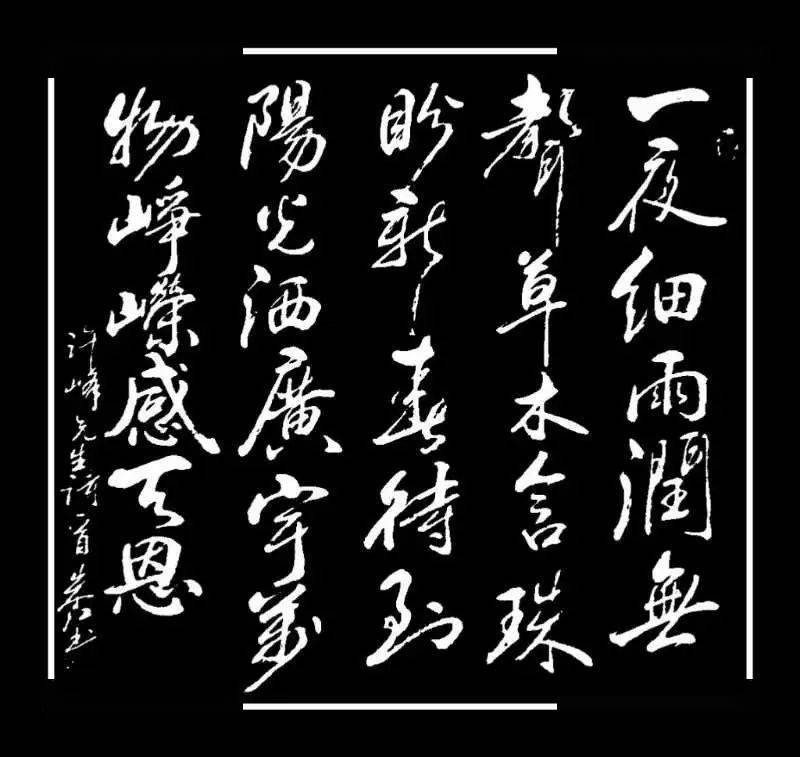 一夜细雨潤無
聲草木含珠
盼新春待到
陽光洒廣宇萬
物崢嶸感天恩
许峰先生诗一首